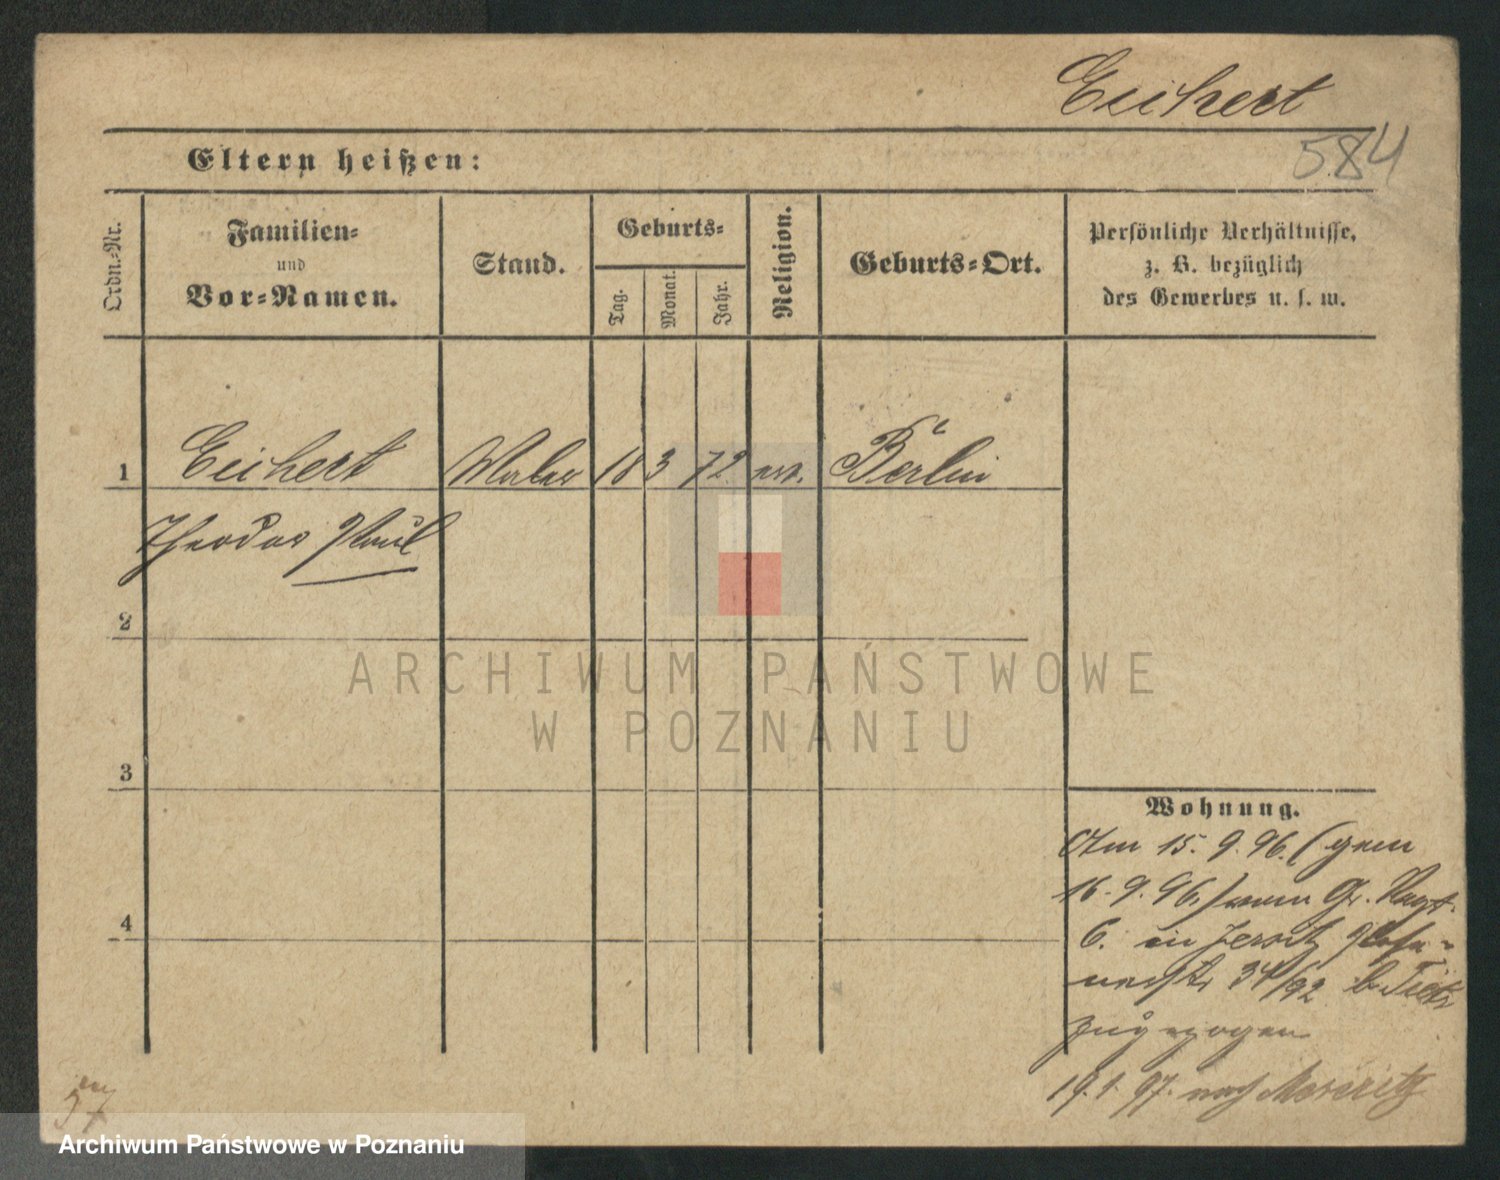 Eichert
584
Eltern heißen:
Ordn.-Nr.
Familien-
und
Vor-Namen.
Stand.
Geburts-
Tag.
Monat.
Jahr.
Religion.
Geburts-Ort.
Persönliche Verhältnisse,
z. B. bezüglich
des Gewerbes u. s. w.
1 Eichert Maler 18 3 72 ev. Berlin
Theodor Paul
2
3
4
Wohnung.
Am 15. 9. 96. (gem
16. 9. 96.) von Gr.
6. in Jersitz
34/92 b.
zugezogen
19. 1. 97. nach Meseritz
57
ARCHIWUM PAŃSTWOWE
W POZNANIU
Archiwum Państwowe w Poznaniu